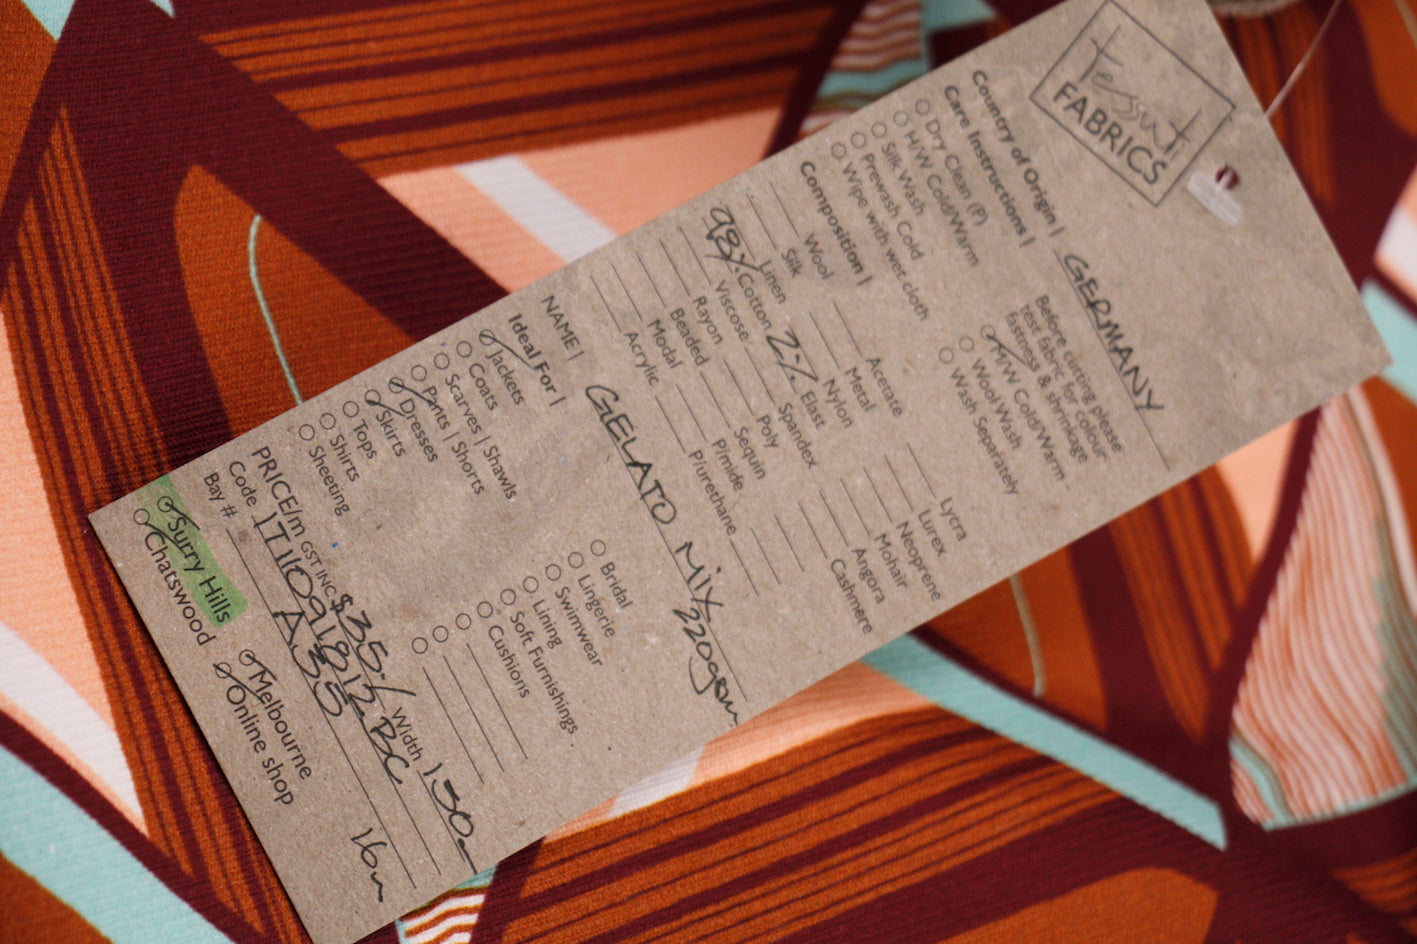 Tessuti
FABRICS
Country of Origin | GERMANY
Care Instructions |
Dry Clean (P)
H/W Cold/Warm
Silk Wash
Prewash Cold
Wipe with wet cloth
Before cutting please
test fabric for colour
fastness & shrinkage
M/W Cold/Warm
Wool Wash
Wash Separately
Composition |
Wool
Silk
Linen
98% Cotton
Viscose
Rayon
Beaded
Modal
Acrylic
Acetate
Metal
Nylon
2% Elast
Spandex
Poly
Sequin
P/mide
P/urethane
Lycra
Lurex
Neoprene
Mohair
Angora
Cashmere
NAME | GELATO MIX 220gsm
Ideal For |
Jackets
Coats
Scarves | Shawls
Pants | Shorts
Dresses
Skirts
Tops
Shirts
Sheeting
Bridal
Lingerie
Swimwear
Lining
Soft Furnishings
Cushions
PRICE/m GST INC $35.- Width 150
Code 1T11091812BC
Bay # A35 16m
Surry Hills
Chatswood
Melbourne
Online shop